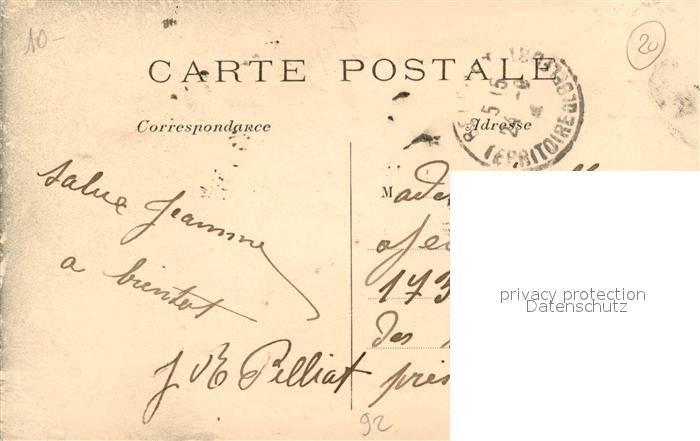 10-
20
CARTE POSTALE
Correspondance
Adresse
5 15
TERRITOIRE DE BELFORT
salue Jeanne
a bientot
J VB Pelliat
Made
173
des
près
92
privacy protection
Datenschutz